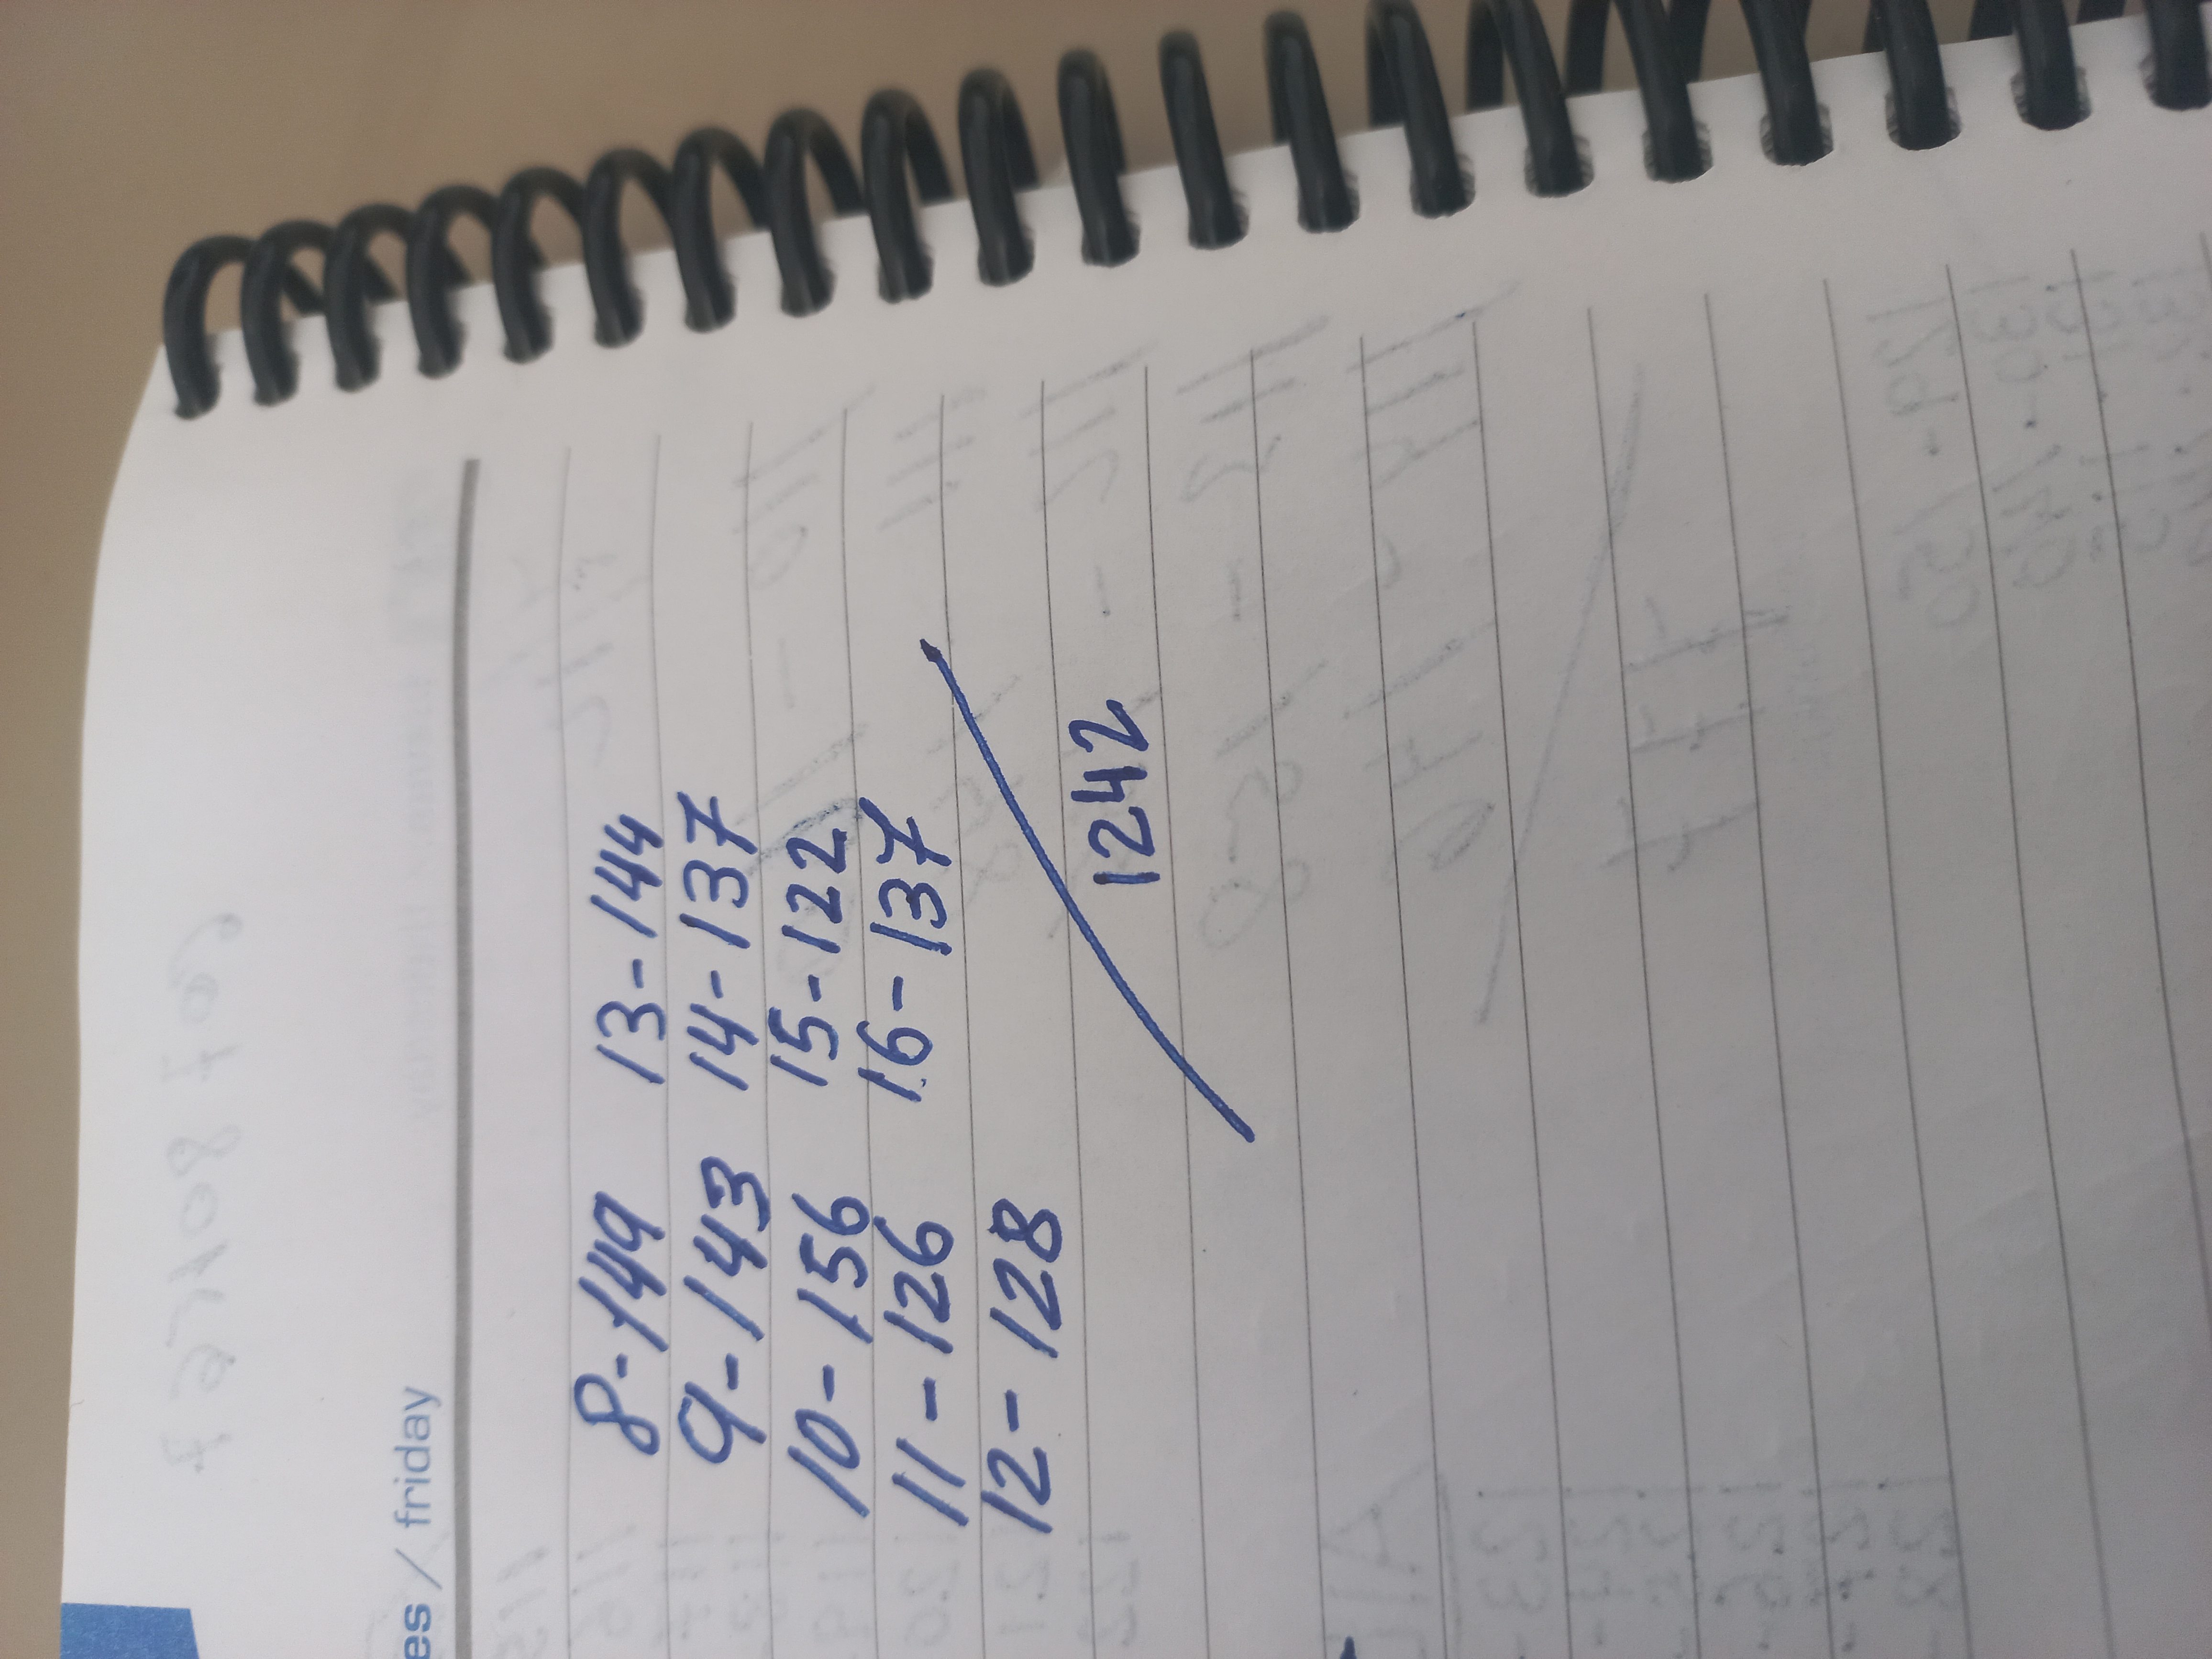 es / friday
8-149 13-144
9-143 14-137
10-156 15-122
11-126 16-137
12-128
1242